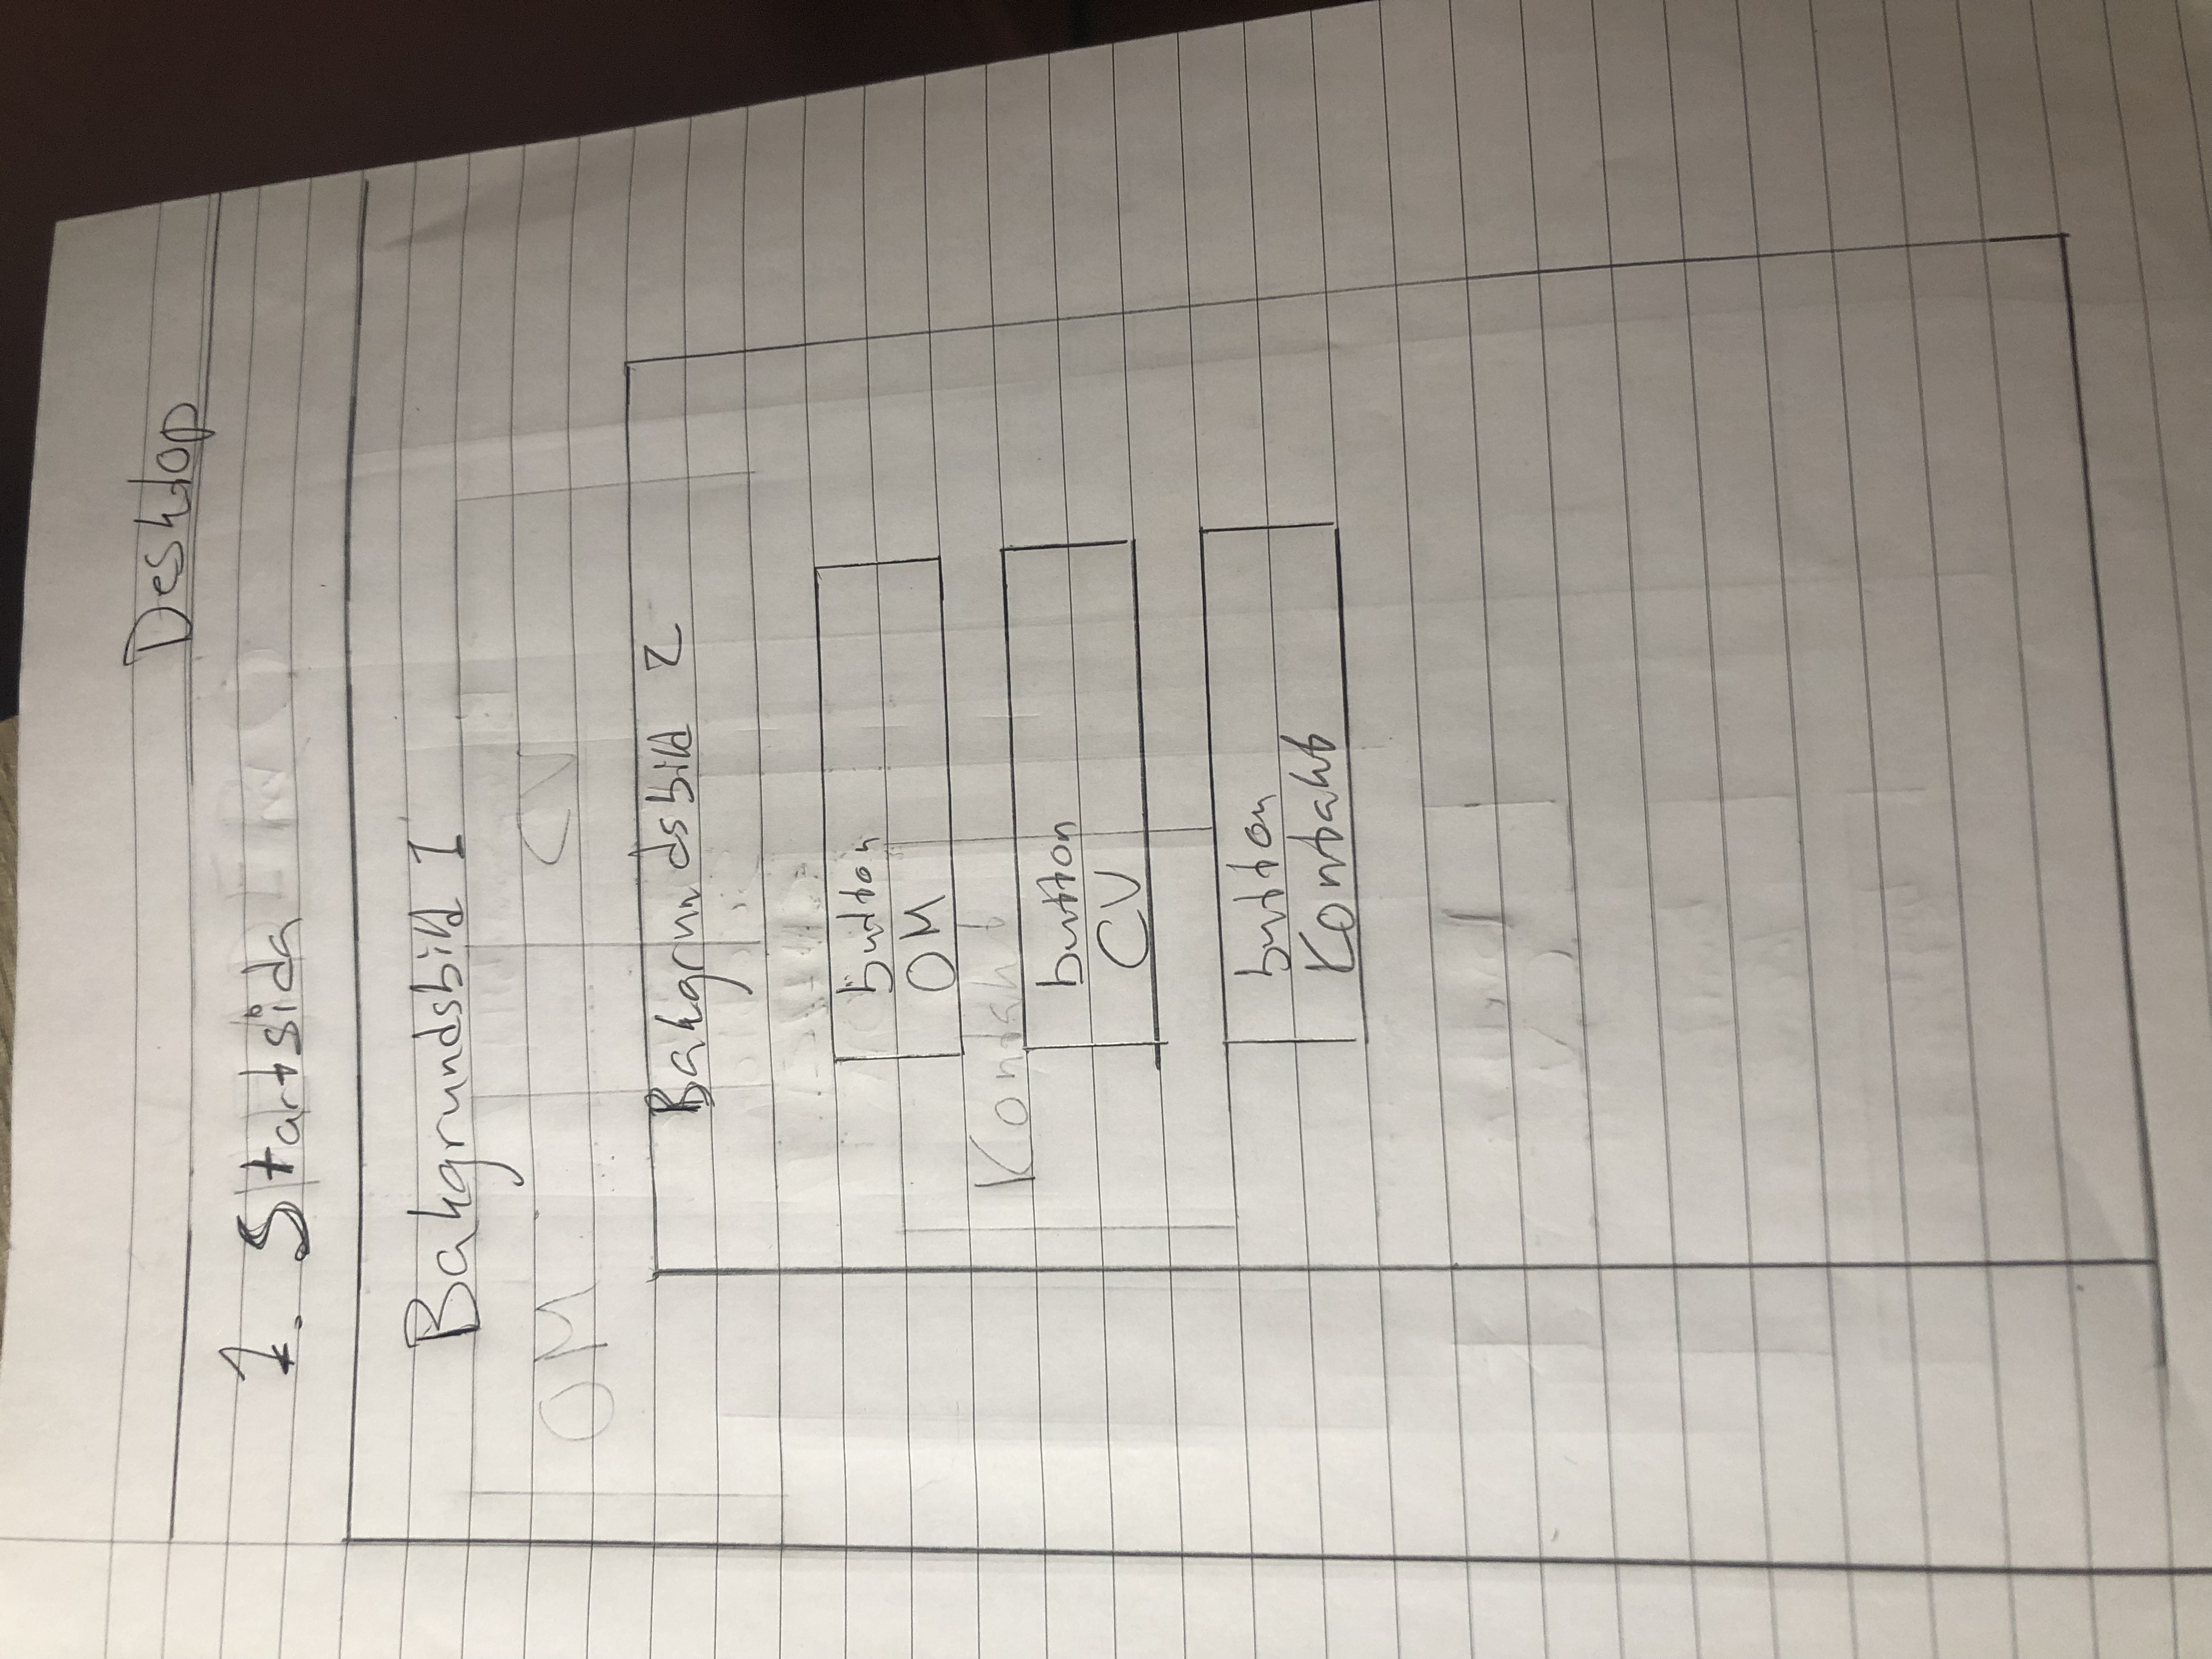 Desktop
1. Startsida
Bakgrundsbild 1
OM CV
Bakgrundsbild 2
button
OM
Kontakt
button
CV
button
Kontakt